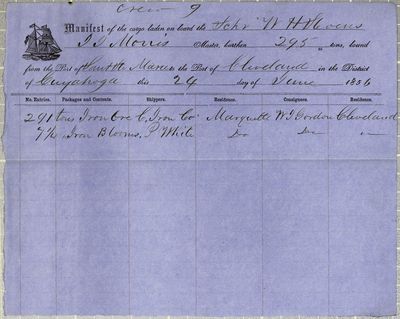 Crew 9
Manifest of the cargo laden on board the Schr W H Stevens
Master, burthen 295 tons, bound
from the Port of Sault St Maries to the Port of Cleveland in the District
of Cuyahoga this 24 day of June 1856
No. Entries. Packages and Contents. Shippers. Residence. Consignees. Residence.
291 Tons Iron Ore C. Iron Co Marquette W J Gordon Cleveland
Iron Blooms, P. White Do Do